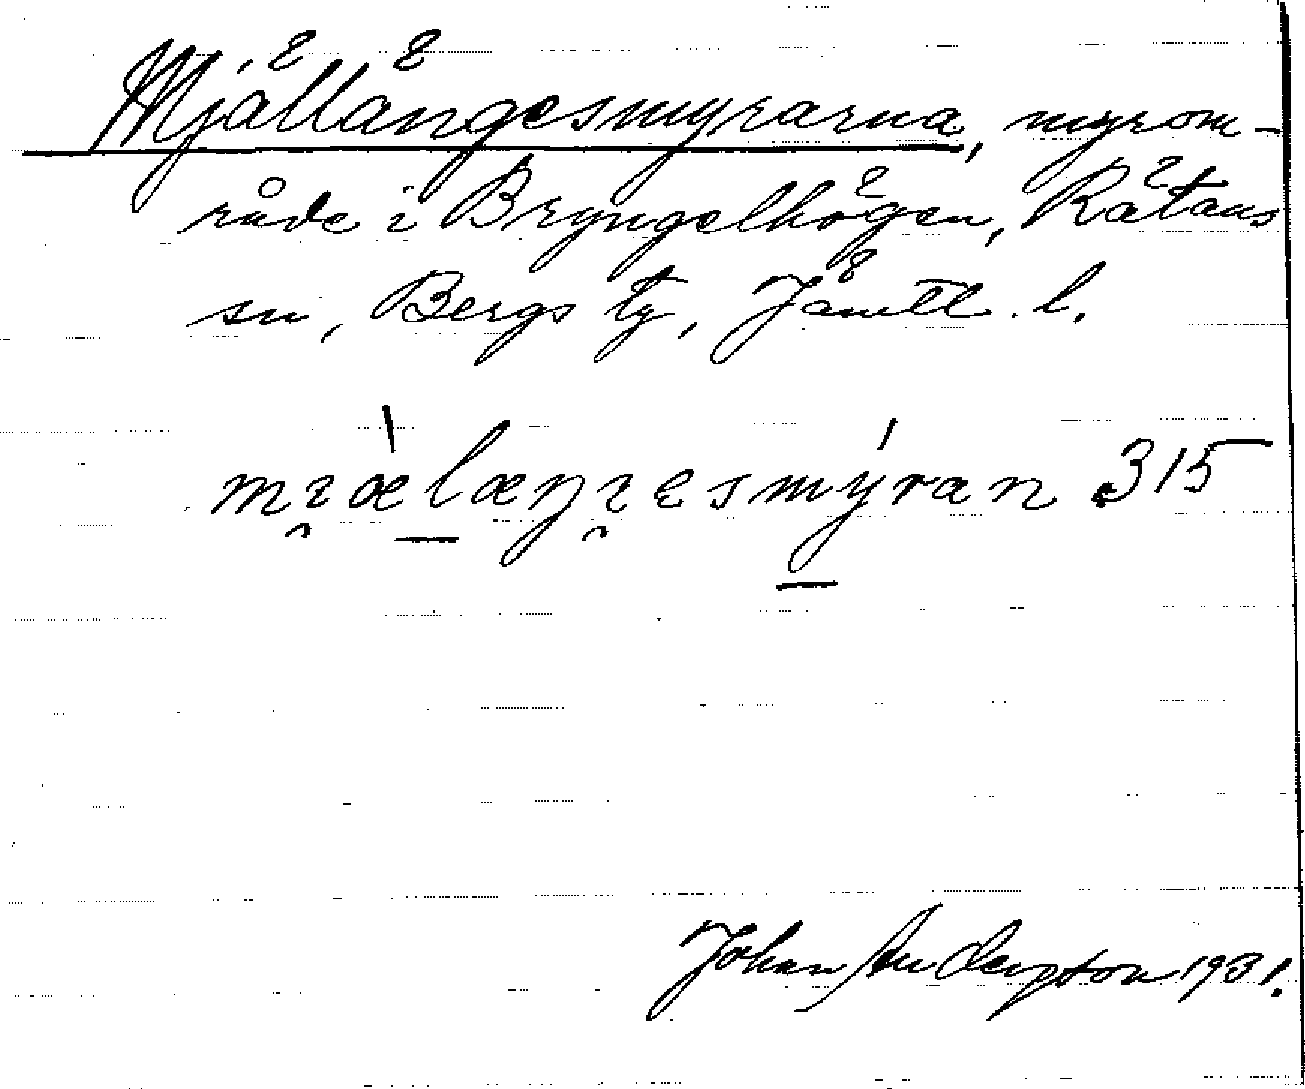 Mjällängesmyrarna, myrom-
råde i Bryngelhögen, Rätans
sn, Bergs tg, Jämtl. l.
mɪ̯æ̀læŋɪ̯esmýran 315
Johan Anderzton 1931.